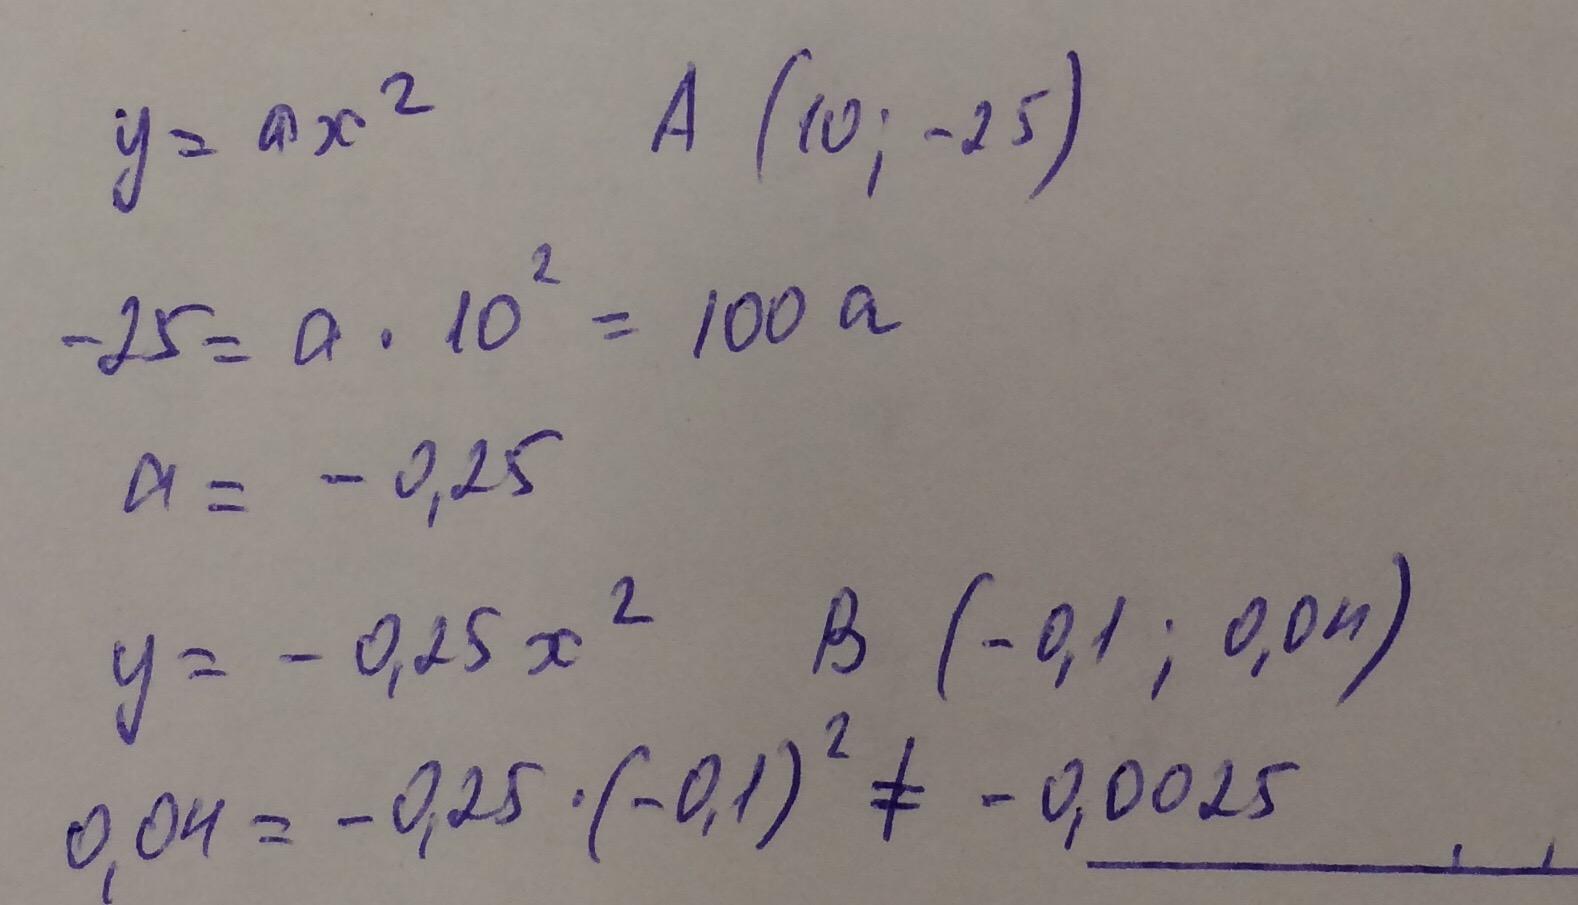 y = ax² A (10; -25)
-25 = a · 10² = 100 a
a = - 0,25
y = - 0,25 x² B (-0,1 ; 0,04)
0,04 = - 0,25 · (-0,1)² ≠ - 0,0025